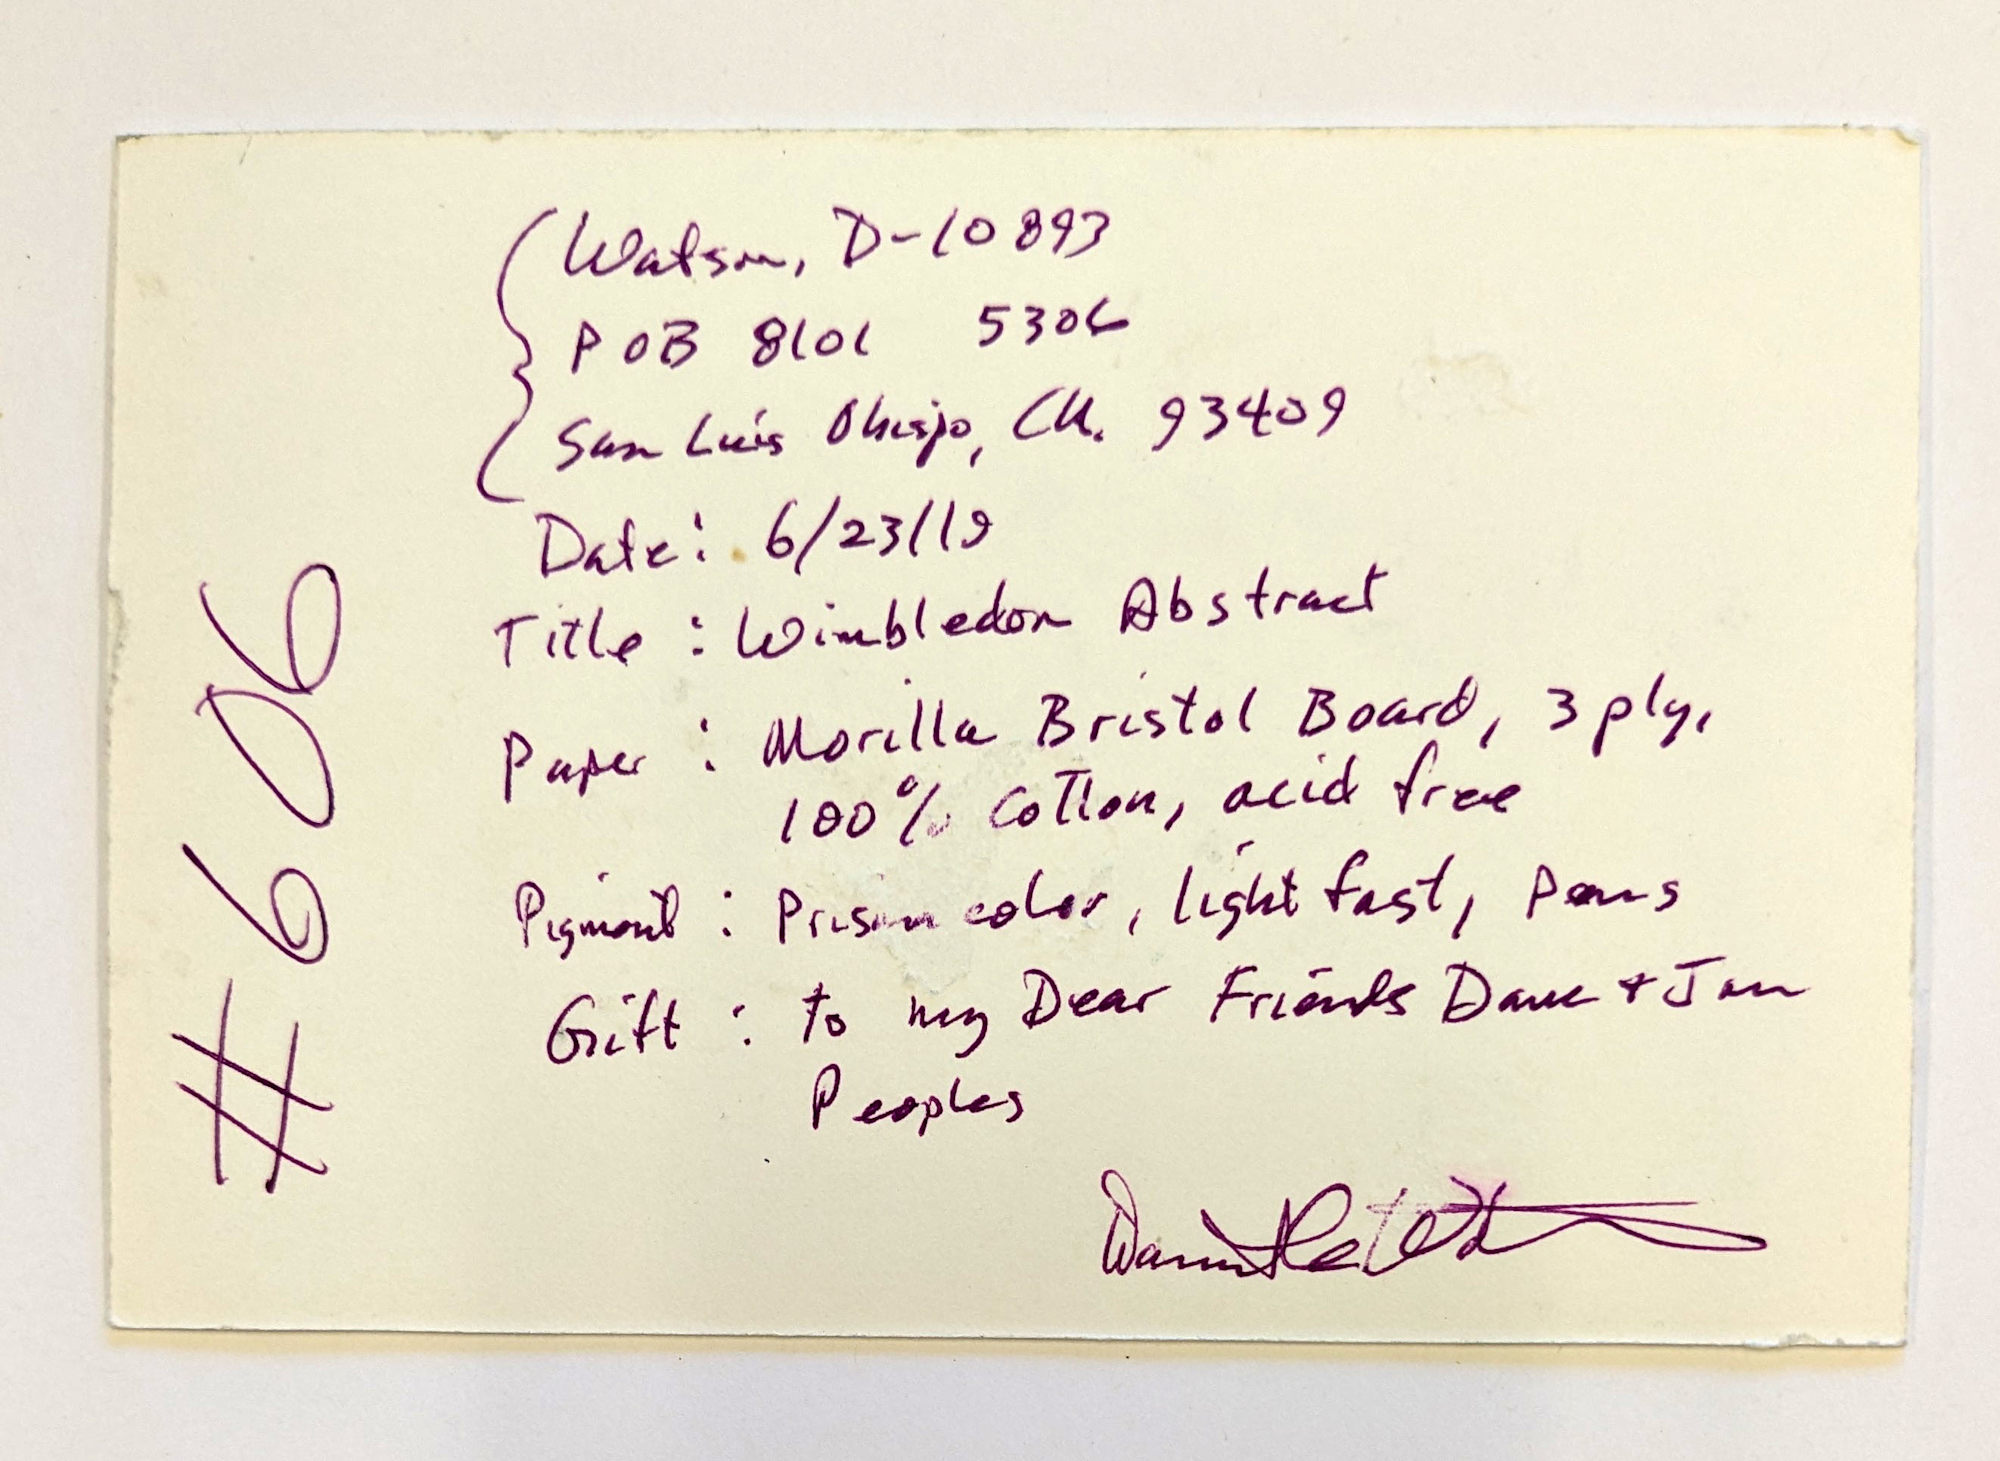 Watson, D-10893
POB 8101 5306
San Luis Obispo, CA. 93409
Date: 6/23/19
Title: Wimbledon Abstract
Paper: Morilla Bristol Board, 3 ply,
100% Cotton, acid free
Pigment: Prismacolor, light fast, Pens
Gift: to my Dear Friends Dave + Jan
Peoples
#606